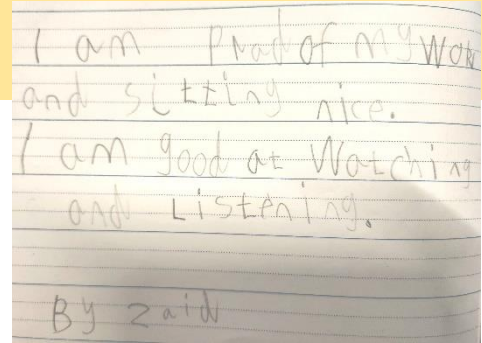 I am Prad of my wok
and sitting nice.
I am good at Watching
and Listening.
By zaid